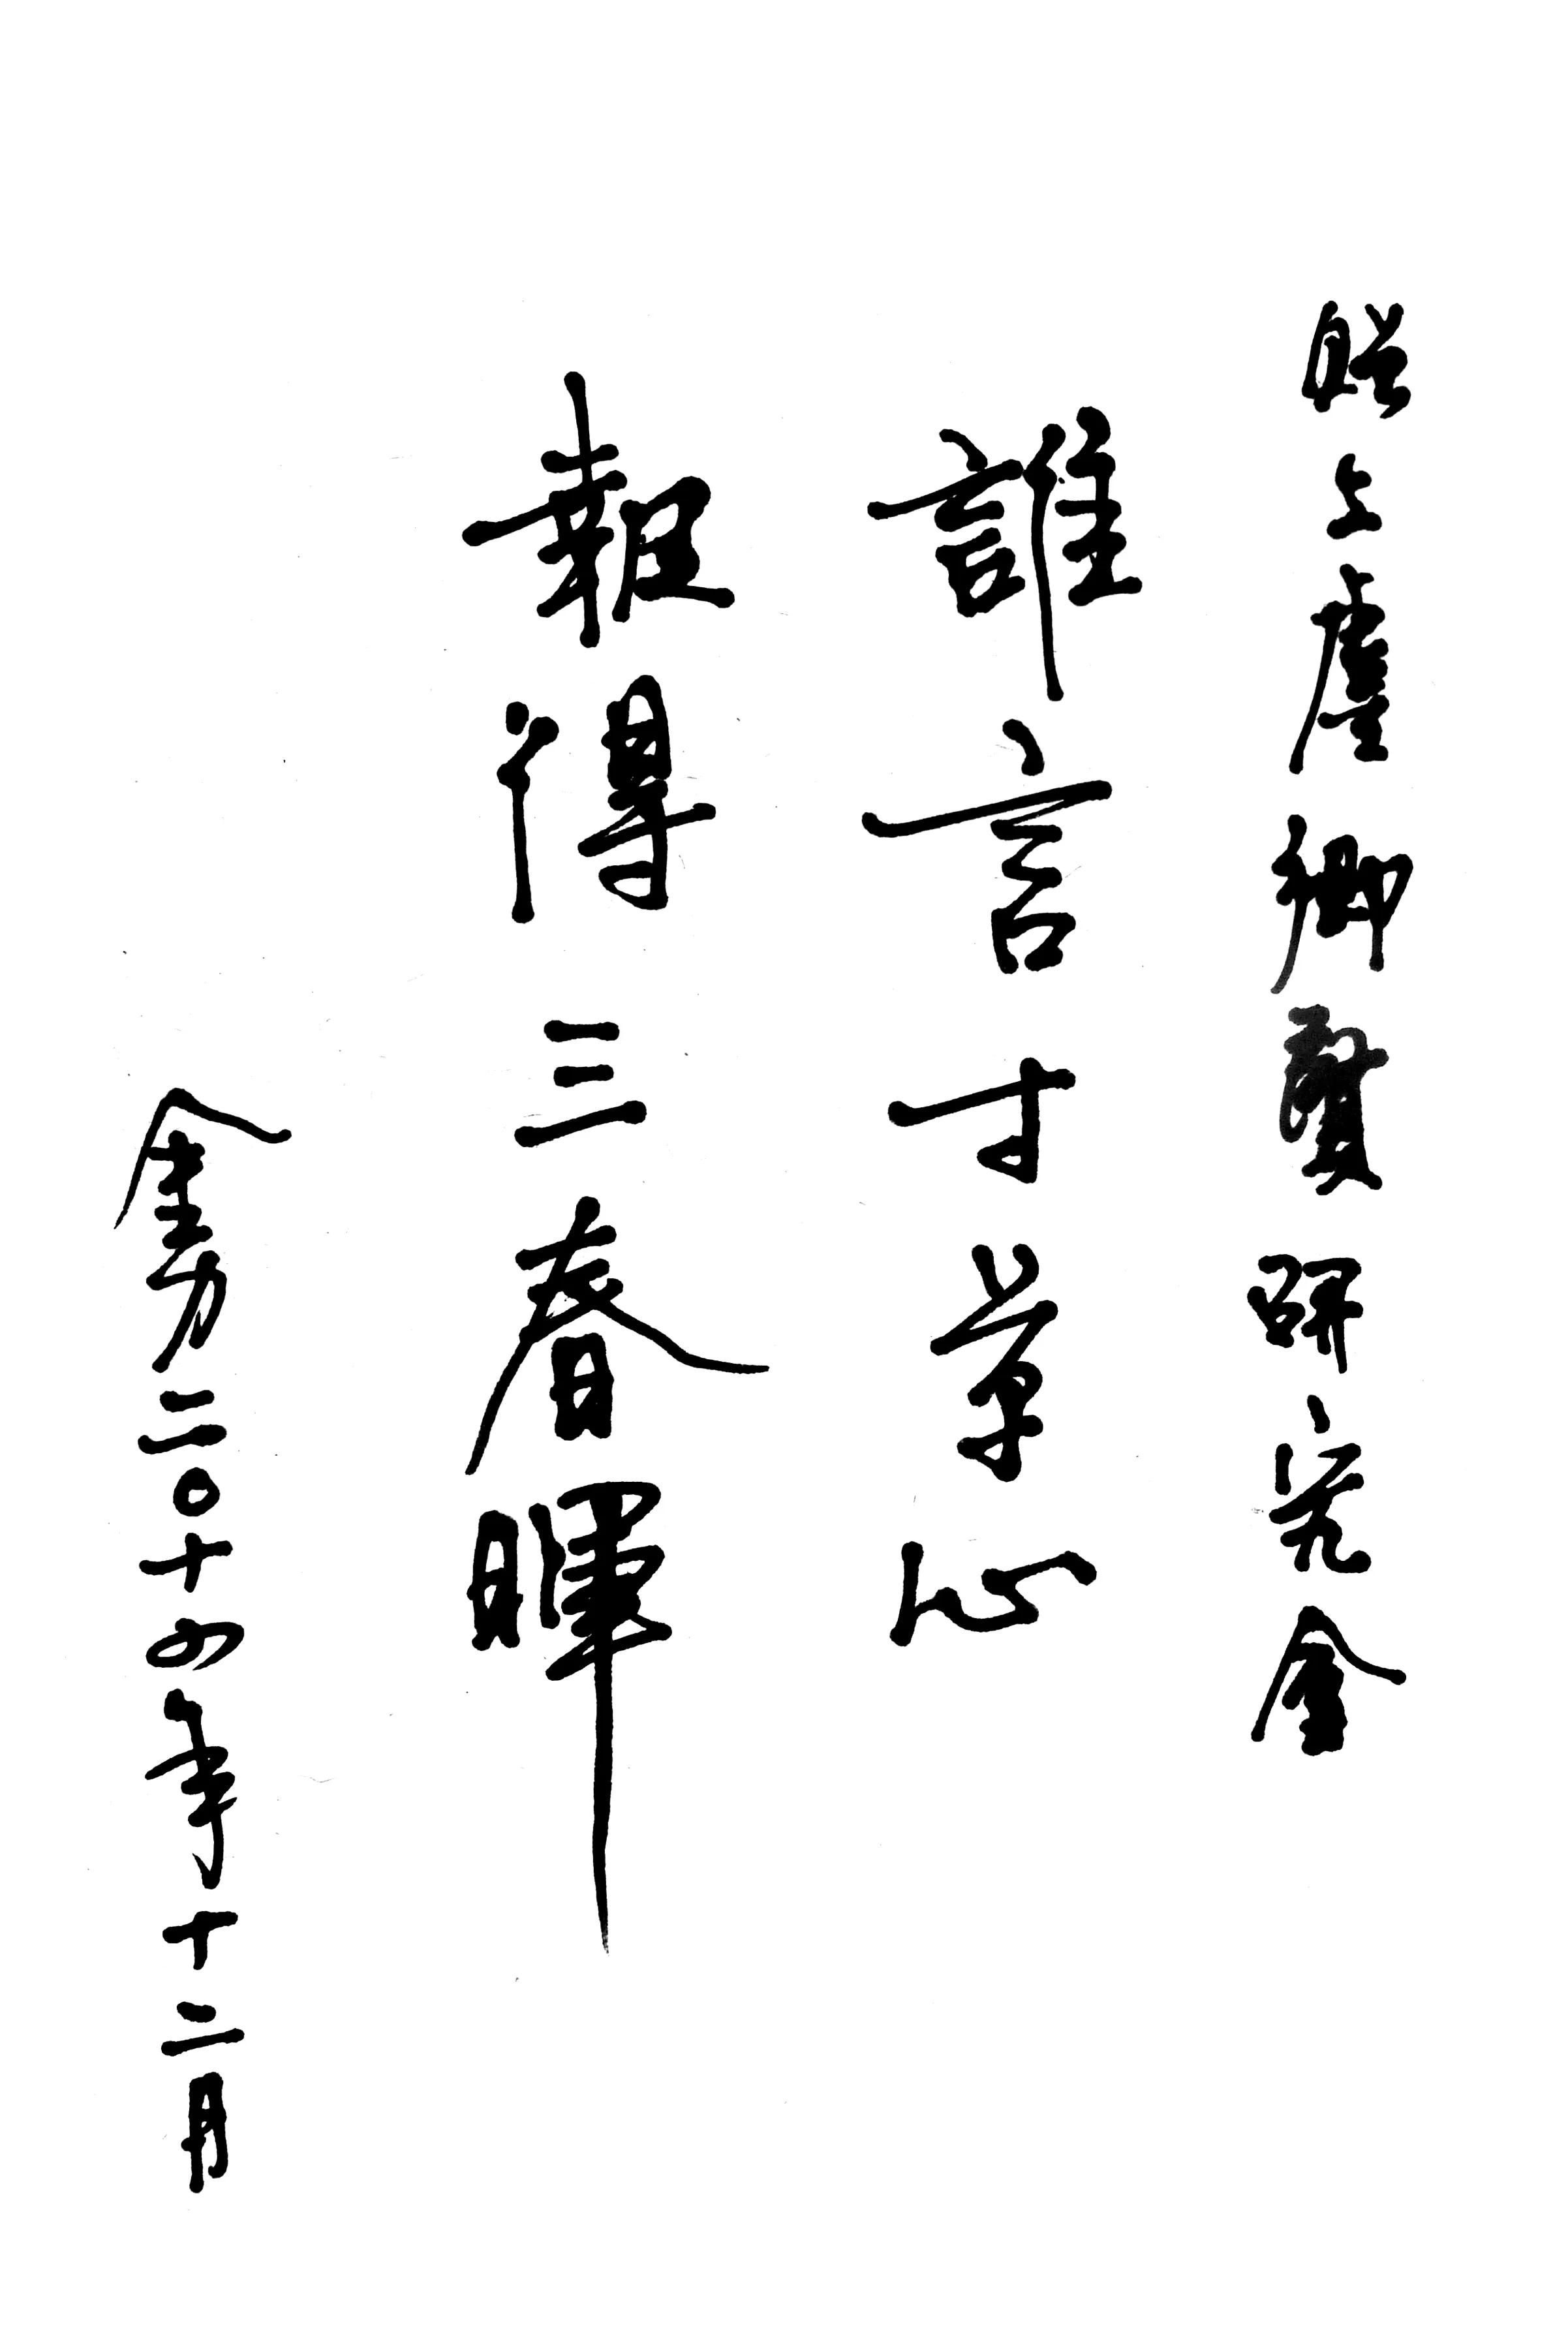 贈上虞鄉賢研究會
誰言寸草心
報得三春暉
金力二〇十四年十二月